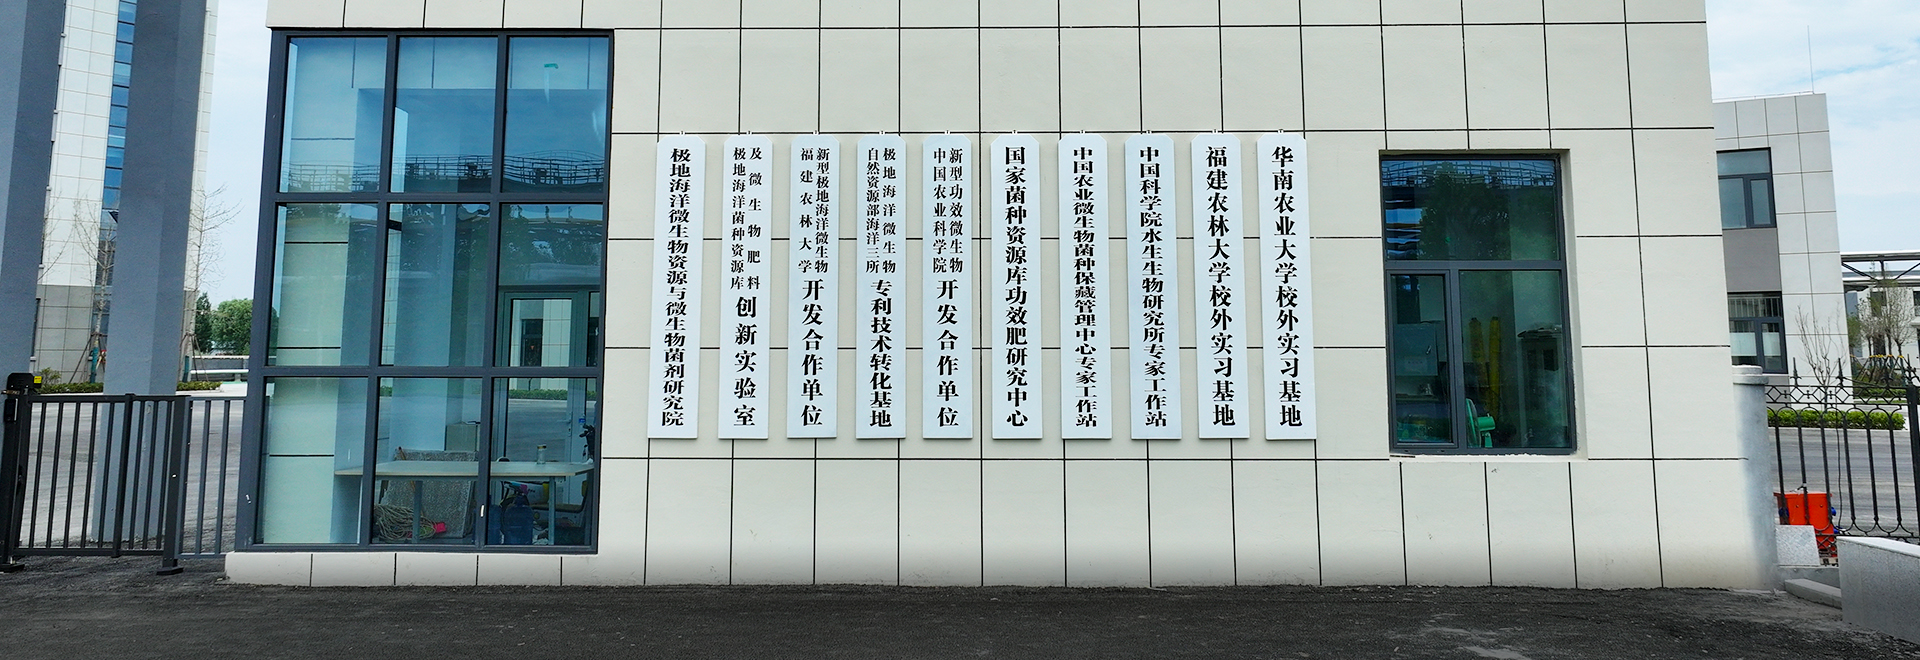 极地海洋微生物资源与微生物菌剂研究院
极地海洋菌种资源库
及微生物肥料
创新实验室
福建农林大学
新型极地海洋微生物
开发合作单位
自然资源部海洋三所
极地海洋微生物
专利技术转化基地
中国农业科学院
新型功效微生物
开发合作单位
国家菌种资源库功效肥研究中心
中国农业微生物菌种保藏管理中心专家工作站
中国科学院水生生物研究所专家工作站
福建农林大学校外实习基地
华南农业大学校外实习基地